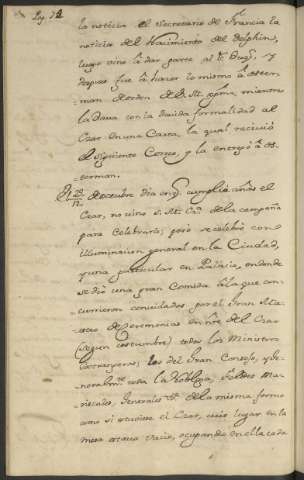 la noticia el Secretario de Francia la
noticia del Nacimiento del Delphin,
luego vino à dar parte al y
despues fue à hacer lo mismo à Oster-
man de orden de S. M. mientras
la dava con la devida formalidad al
Czar en una Carta, la qual recivió
el siguiente Correo, y la entregó à Os-
terman.
de octubre dia cumplió años el
Czar, no vino S. M. de la campaña
para celebrarlo; pero se celebró con
Illuminacion general en la Ciudad,
y una particular en Palacio, en donde
se dió una gran Comida à la que con-
currieron convidados por el Gran Ma-
estro de Ceremonias en nre. del Czar
(segun costumbre) todos los Ministros
Extrangeros; los del Gran Consejo, y ge-
neralmte. toda la Nobleza, Feldes Ma-
riscales, Generales de la misma forma
como si estuviese el Czar, cuio lugar en la
mesa estava vacio, ocupando en ella cada